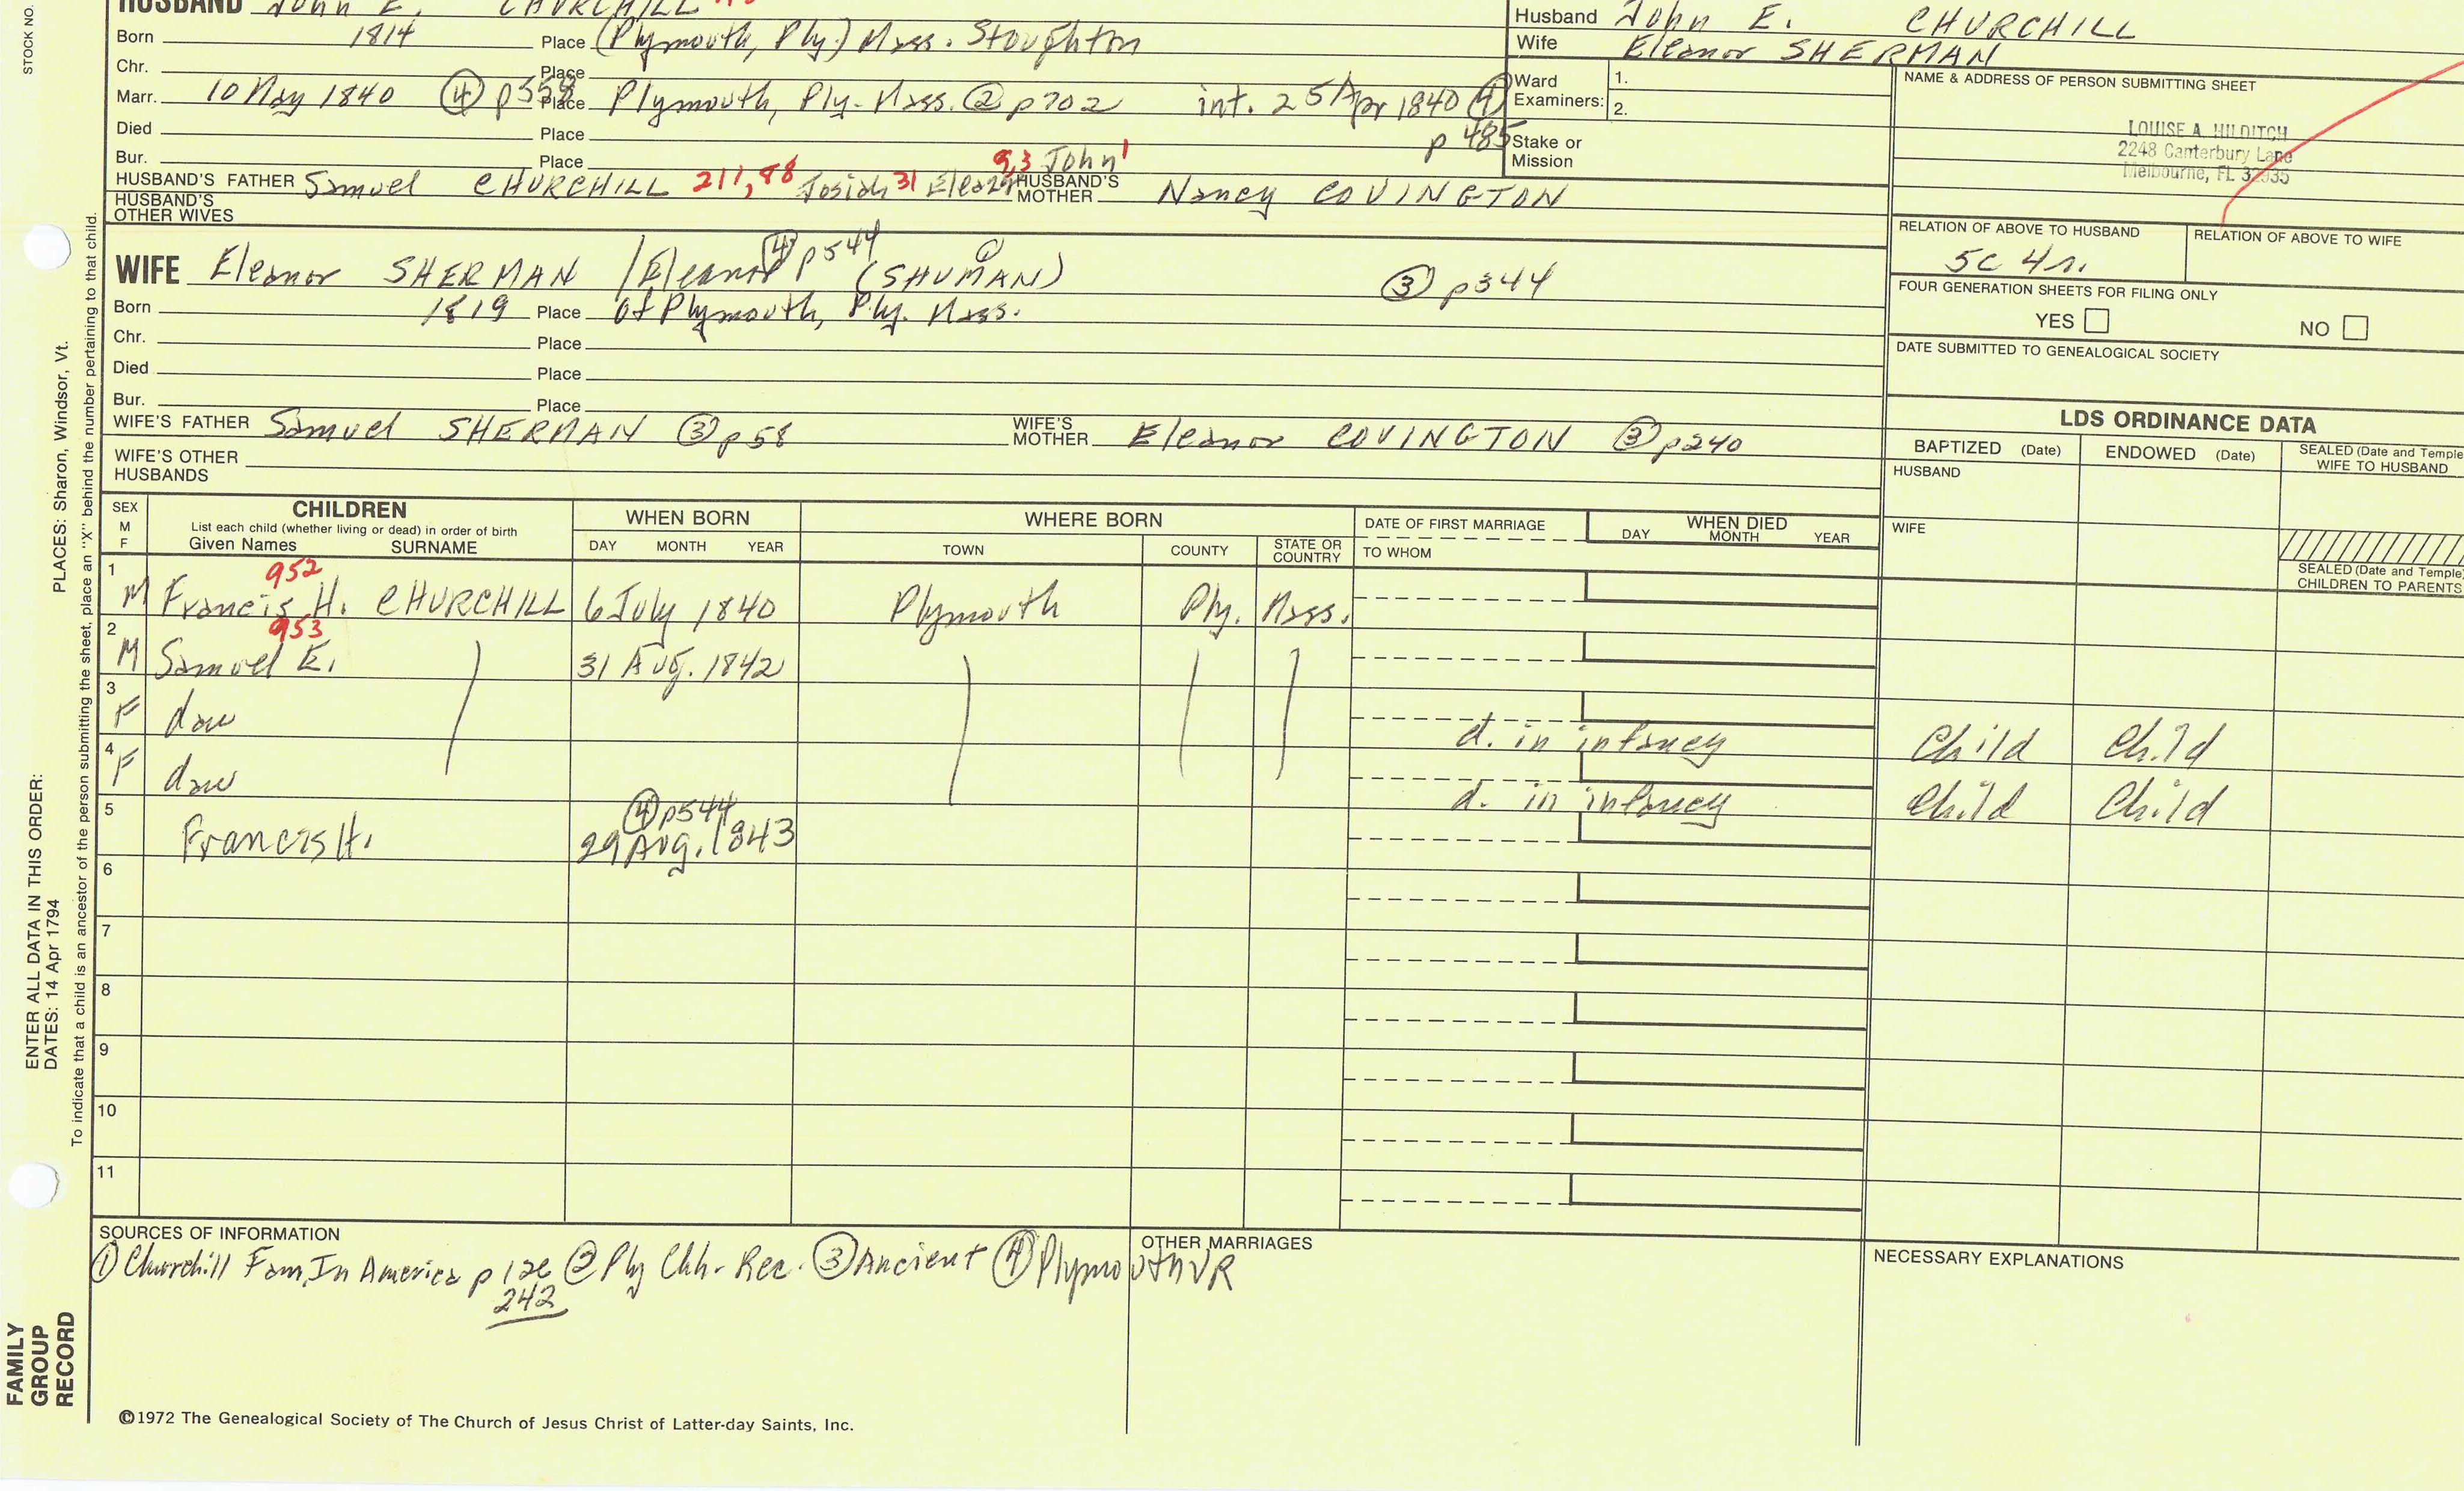 STOCK NO.
HUSBAND John E. CHURCHILL
Born 1814 Place (Plymouth, Ply) Mass. Stoughton
Chr. Place
Marr. 10 May 1840 ④ p558 Place Plymouth, Ply. Mass. ② p702 int. 25 Apr 1840 ④ p 485
Died Place
Bur. Place
HUSBAND'S FATHER Samuel CHURCHILL 211, 98 Josiah 31 Eleazar 9,3 John 1 HUSBAND'S MOTHER Nancy COVINGTON
HUSBAND'S OTHER WIVES
WIFE Eleanor SHERMAN /Eleanor ④ p544 (SHUMAN) ① ③ p344
Born 1819 Place of Plymouth, Ply. Mass.
Chr. Place
Died Place
Bur. Place
WIFE'S FATHER Samuel SHERMAN ③ p58 WIFE'S MOTHER Eleanor COVINGTON ③ p240
WIFE'S OTHER HUSBANDS
Husband John E. CHURCHILL
Wife Eleanor SHERMAN
Ward Examiners: 1.
2.
Stake or Mission
NAME & ADDRESS OF PERSON SUBMITTING SHEET
LOUISE A. HILDITCH
2248 Canterbury Lane
Melbourne, FL 32935
RELATION OF ABOVE TO HUSBAND RELATION OF ABOVE TO WIFE
5C 4r.
FOUR GENERATION SHEETS FOR FILING ONLY
YES NO
DATE SUBMITTED TO GENEALOGICAL SOCIETY
LDS ORDINANCE DATA
BAPTIZED (Date) ENDOWED (Date) SEALED (Date and Temple WIFE TO HUSBAND
HUSBAND
WIFE
SEALED (Date and Temple) CHILDREN TO PARENTS
SEX M F CHILDREN WHEN BORN WHERE BORN DATE OF FIRST MARRIAGE WHEN DIED
List each child (whether living or dead) in order of birth
Given Names SURNAME DAY MONTH YEAR TOWN COUNTY STATE OR COUNTRY TO WHOM DAY MONTH YEAR
952
1 M Francis H. CHURCHILL 6 July 1840 Plymouth Ply. Mass.
953
2 M Samuel E. 31 Aug. 1842
3 F dau d. in infancy Child Child
4 F dau d. in infancy Child Child
④ p544
5 Francis H. 29 Aug. 1843
6
7
8
9
10
11
SOURCES OF INFORMATION
① Churchill Fam, In America p ② Ply Chh. Rec. ③ Ancient ④ Plymouth VR
242
OTHER MARRIAGES
NECESSARY EXPLANATIONS
©1972 The Genealogical Society of The Church of Jesus Christ of Latter-day Saints, Inc.
PLACES: Sharon, Windsor, Vt.
To indicate that a child is an ancestor of the person submitting the sheet, place an "X" behind the number pertaining to that child.
ENTER ALL DATA IN THIS ORDER:
DATES: 14 Apr 1794
FAMILY
GROUP
RECORD